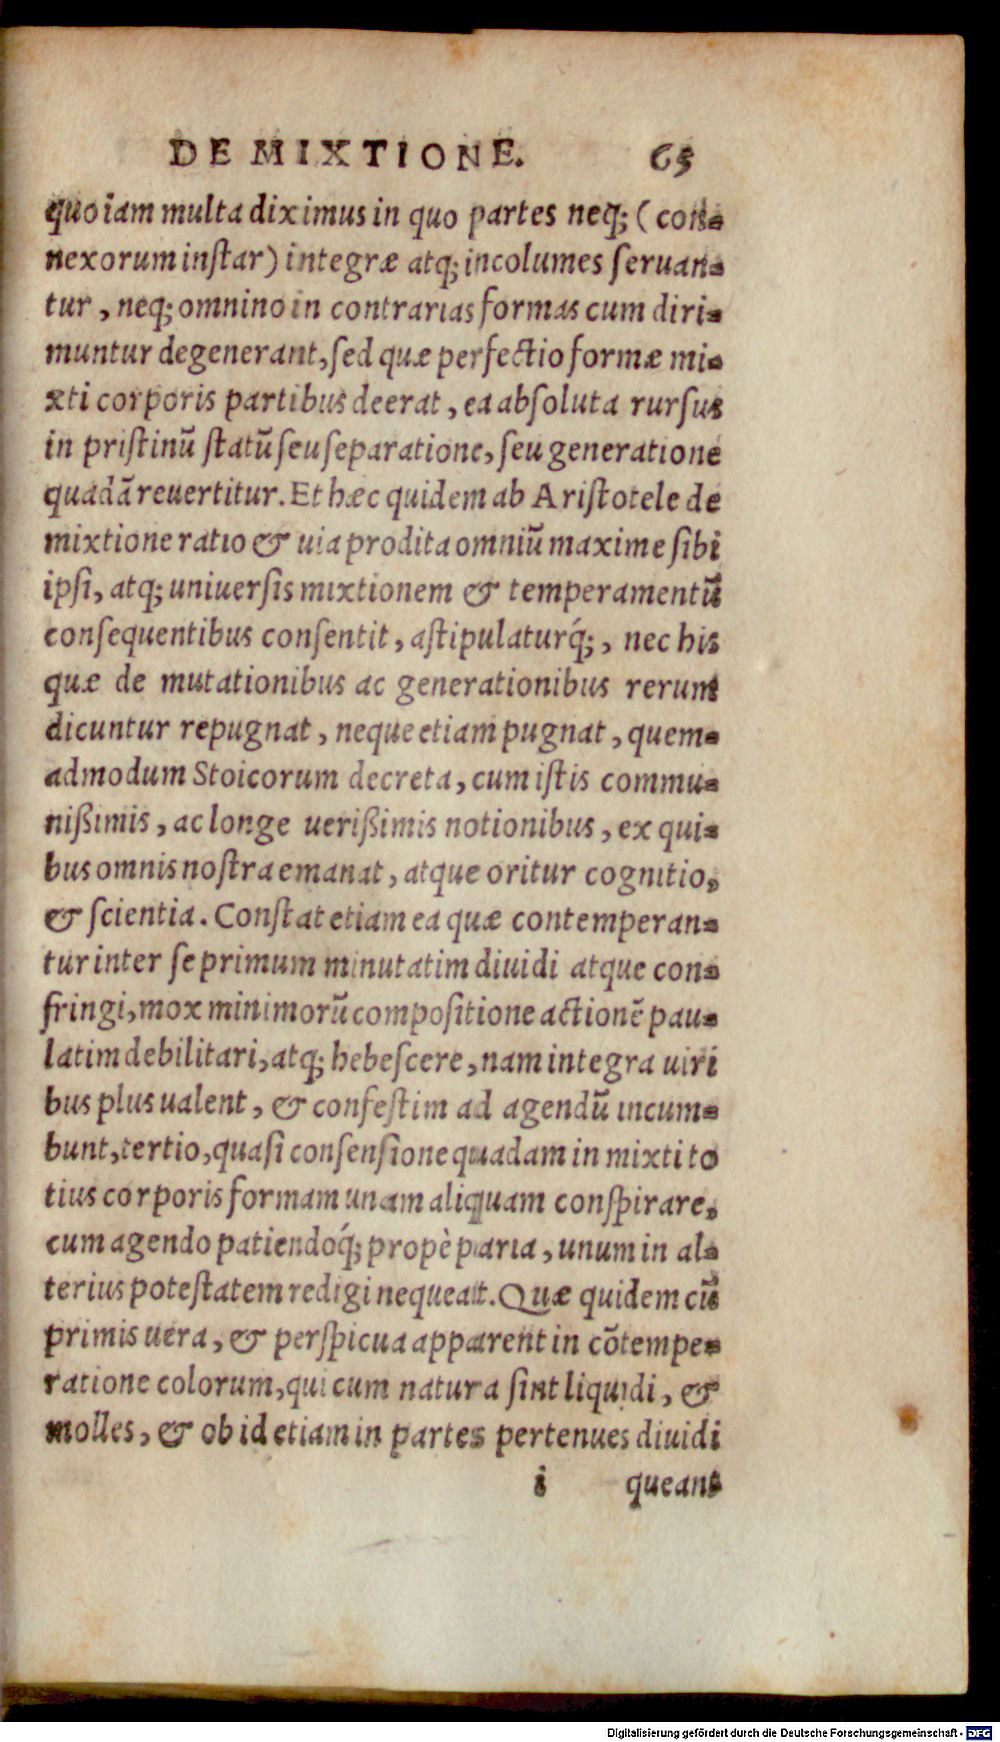 DE MIXTIONE. 65
quo iam multa diximus in quo partes neq; (con-
nexorum inſtar) integræ atq; incolumes ſeruan-
tur, neq; omnino in contrarias formas cum diri-
muntur degenerant, ſed quæ perfectio formæ mi-
xti corporis partibus deerat, ea abſoluta rurſus
in priſtinũ ſtatũ ſeu ſeparatione, ſeu generatione
quadã reuertitur. Et hæc quidem ab Ariſtotele de
mixtione ratio & uia prodita omniũ maxime ſibi
ipſi, atq; uniuerſis mixtionem & temperamentũ
conſequentibus conſentit, aſtipulaturq́;, nec his
quæ de mutationibus ac generationibus rerum
dicuntur repugnat, neque etiam pugnat, quem-
admodum Stoicorum decreta, cum iſtis commu-
nißimis, ac longe uerißimis notionibus, ex qui-
bus omnis noſtra emanat, atque oritur cognitio,
& ſcientia. Conſtat etiam ea quæ contemperan-
tur inter ſe primum minutatim diuidi atque con-
fringi, mox minimorũ compoſitione actionẽ pau-
latim debilitari, atq; hebeſcere, nam integra uiri
bus plus ualent, & confeſtim ad agendũ incum-
bunt, tertio, quaſi conſenſione quadam in mixti to
tius corporis formam unam aliquam conſpirare,
cum agendo patiendoq́; propè paria, unum in al-
terius poteſtatem redigi nequeat. Quæ quidem cũ
primis uera, & perſpicua apparent in cõtempe-
ratione colorum, qui cum natura ſint liquidi, &
molles, & ob id etiam in partes pertenues diuidi
i queant
Digitalisierung gefördert durch die Deutsche Forschungsgemeinschaft - DFG